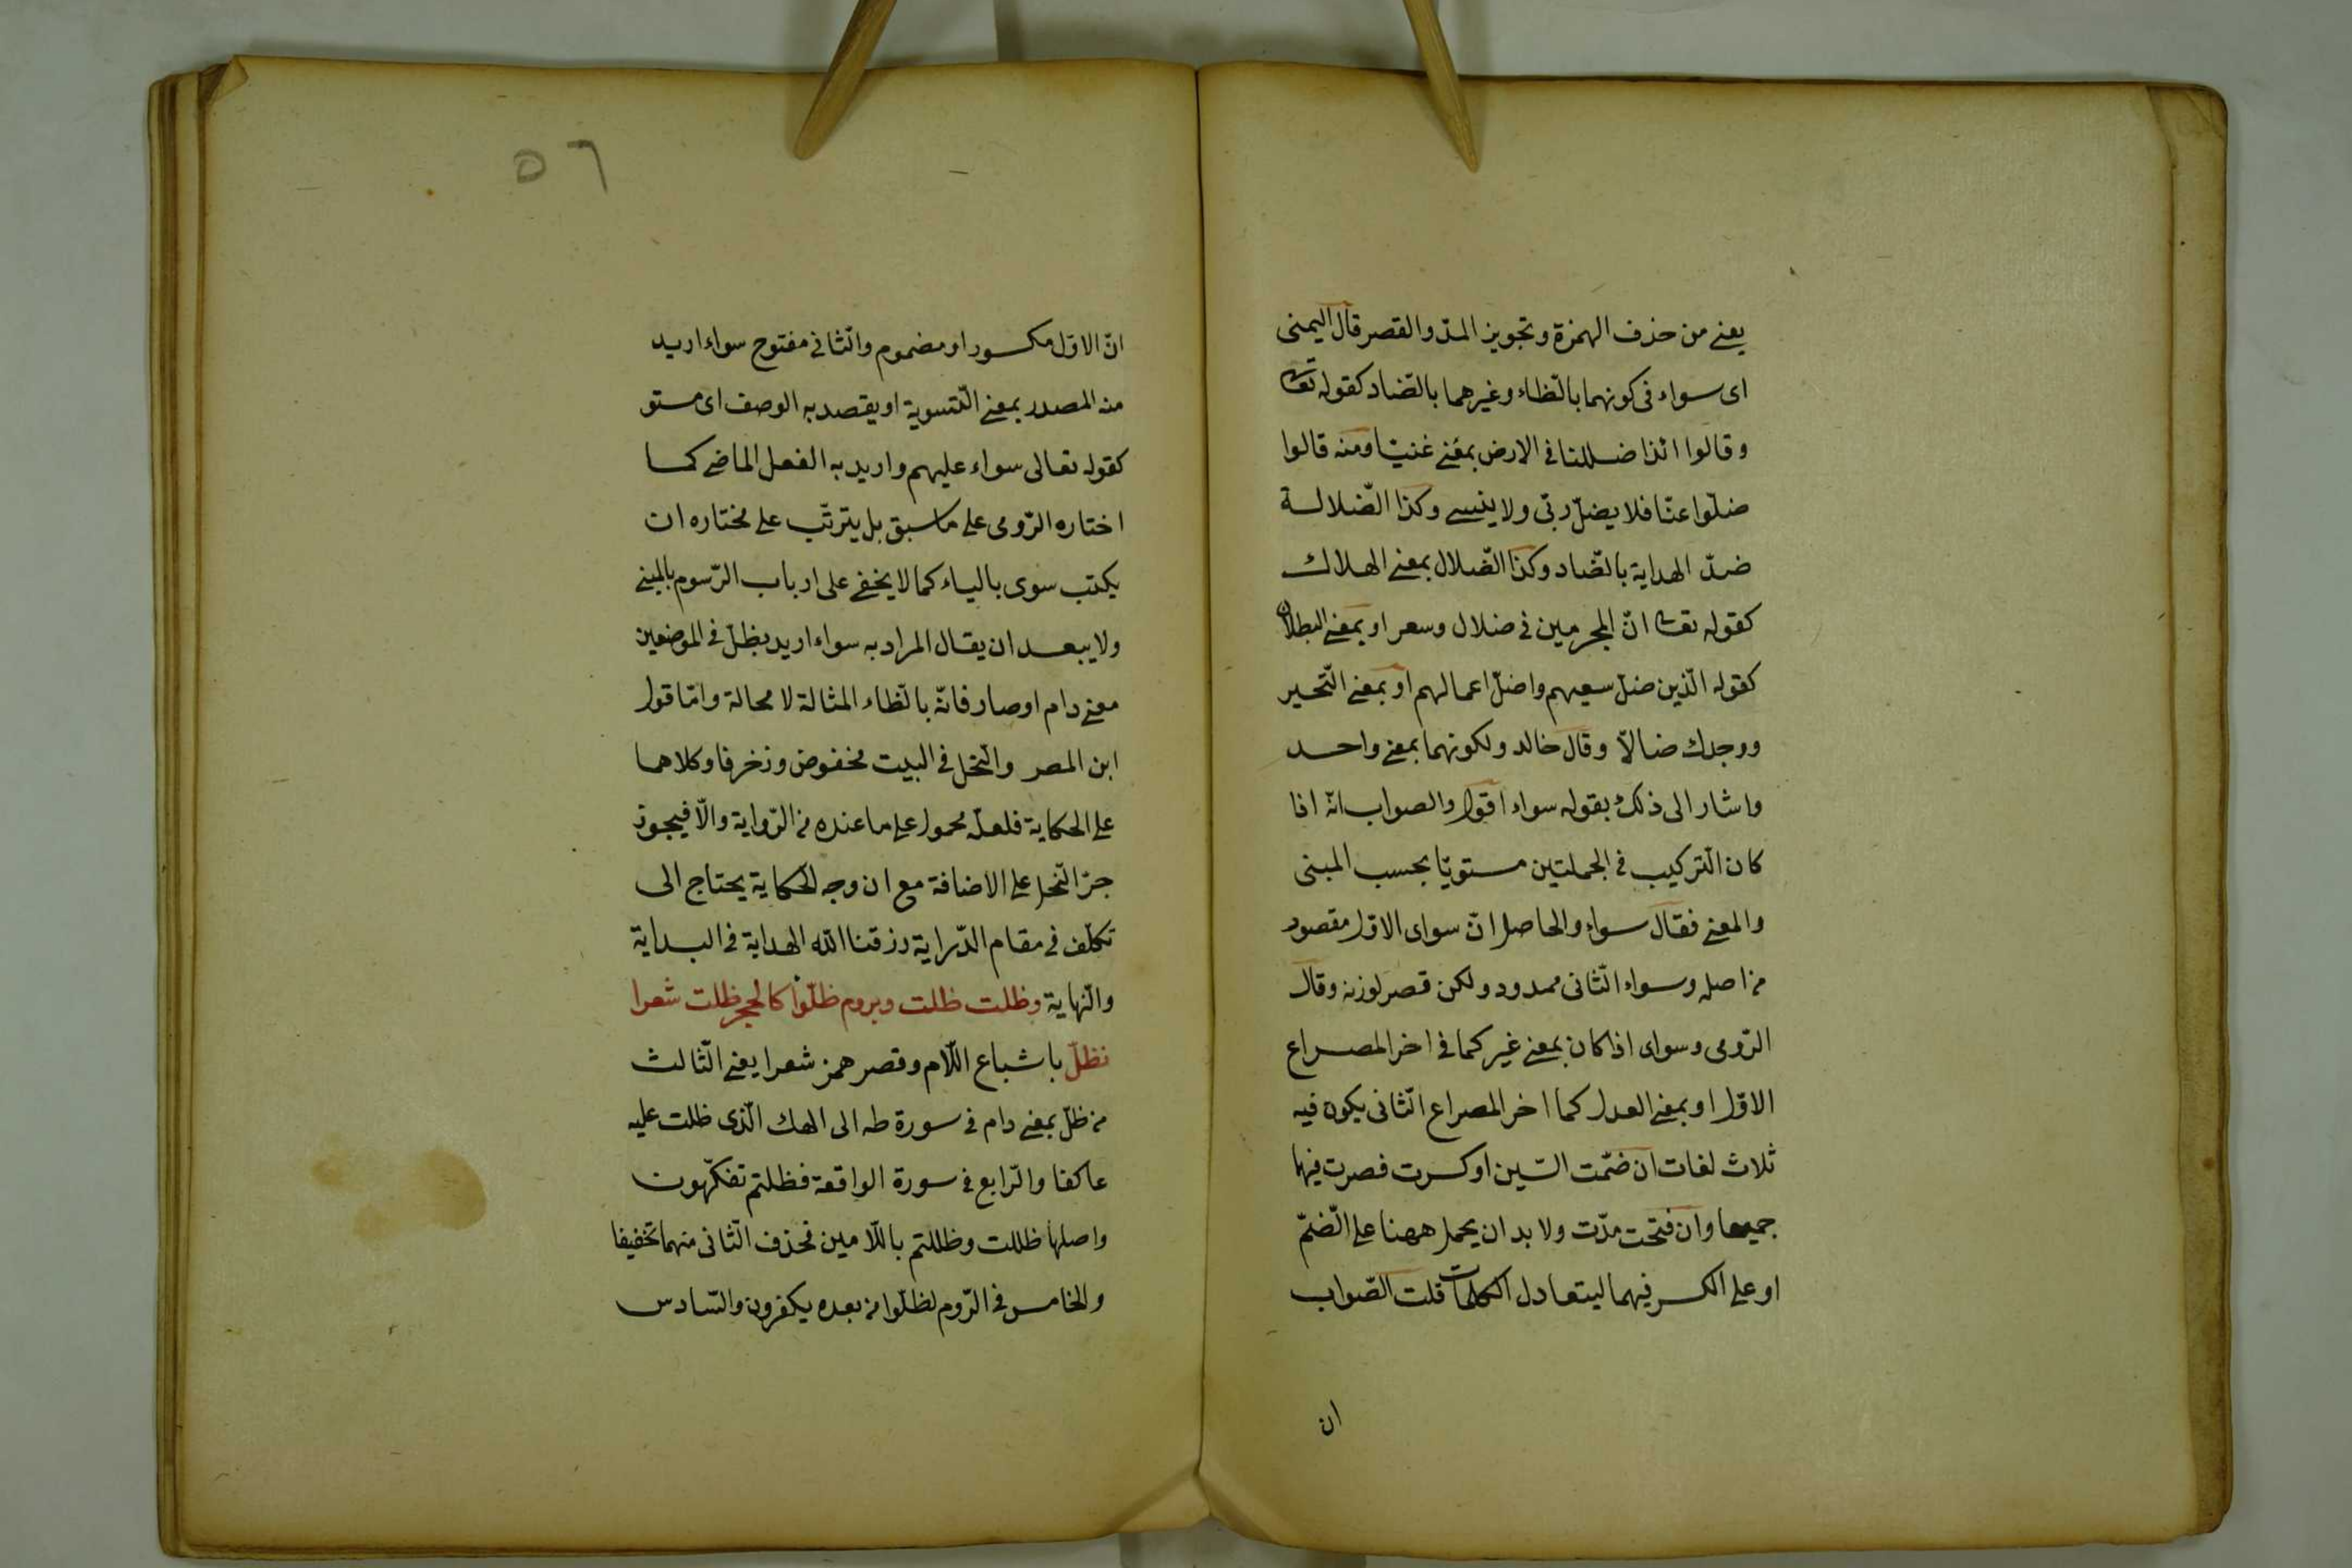 يعني من حذف الهمزة وتجويز المدّ والقصر قال اليمنى
اى سواء فى كونهما بالظاء وغيرهما بالضّاد كقوله تعا
وقالوا ائذا ضللنا فى الارض بمعنى غنيّا ومنه قالوا
ضلّوا عنّا فلا يضلّ ربّى ولا ينسى وكذا الضّلالة
ضدّ الهداية بالضّاد وكذا الضّلال بمعنى الهلاك
كقوله تعا انّ المجرمين فى ضلال وسعر او بمعنى البطلان
كقوله الّذين ضلّ سعيهم واضلّ اعمالهم او بمعنى التّحير
ووجدك ضالّا وقال خالد ولكونهما بمعنى واحد
واشار الى ذلك بقوله سواء اقول والصواب انّه اذا
كان التّركيب فى الجملتين مستويّا بحسب المبنى
والمعنى فقال سواء والحاصل انّ سواى الاوّل مقصود
من اصله وسواء الثّانى ممدود ولكن قصر لوزنه وقال
الرّومى وسواى اذا كان بمعنى غير كما فى اخر المصراع
الاوّل او بمعنى العدل كما اخر المصراع الثّانى يكون فيه
ثلاث لغات ان ضمّت السّين او كسرت قصرت فيهما
جميعا وان فتحت مدّت ولا بد ان يحمل ههنا على الضّمّ
او على الكسر فيهما ليتعادل الكلمات قلت الصّواب
ان
٥٦
انّ الاوّل مكسور او مضموم والثّانى مفتوح سواء اريد
منه المصدر بمعنى التّسوية او يقصد به الوصف اى مستو
كقوله تعالى سواء عليهم واريد به الفعل الماضى كما
اختاره الرّومى على ما سبق بل يترتّب على مختاره ان
يكتب سوى بالياء كما لا يخفى على ارباب الرّسوم بالمبنى
ولا يبعد ان يقال المراد به سواء اريد بظلّ فى الموضعين
معنى دام او صار فانّه بالظّاء المثالة لا محالة وامّا قول
ابن المصر والنّحل فى البيت مخفوض وزخرفا وكلاهما
على الحكاية فلعلّه محمول على ما عنده من الرّواية والّا فيجوز
جرّ النّحل على الاضافة مع ان وجه الحكاية يحتاج الى
تكلّف فى مقام الدّراية رزقنا اللّه الهداية فى البداية
والنّهاية وظلت ظلت وبروم ظلّوا كالحجر ظلت شعرا
نظلّ باشباع اللّام وقصر همز شعرا يعنى الثّالث
من ظلّ بمعنى دام فى سورة طه الى الهك الّذى ظلت عليه
عاكفا والرّابع فى سورة الواقعة فظلتم تفكّهون
واصلها ظللت وظللتم باللّامين فحذف الثّانى منهما تخفيفا
والخامس فى الرّوم لظلّوا من بعده يكفرون والسّادس